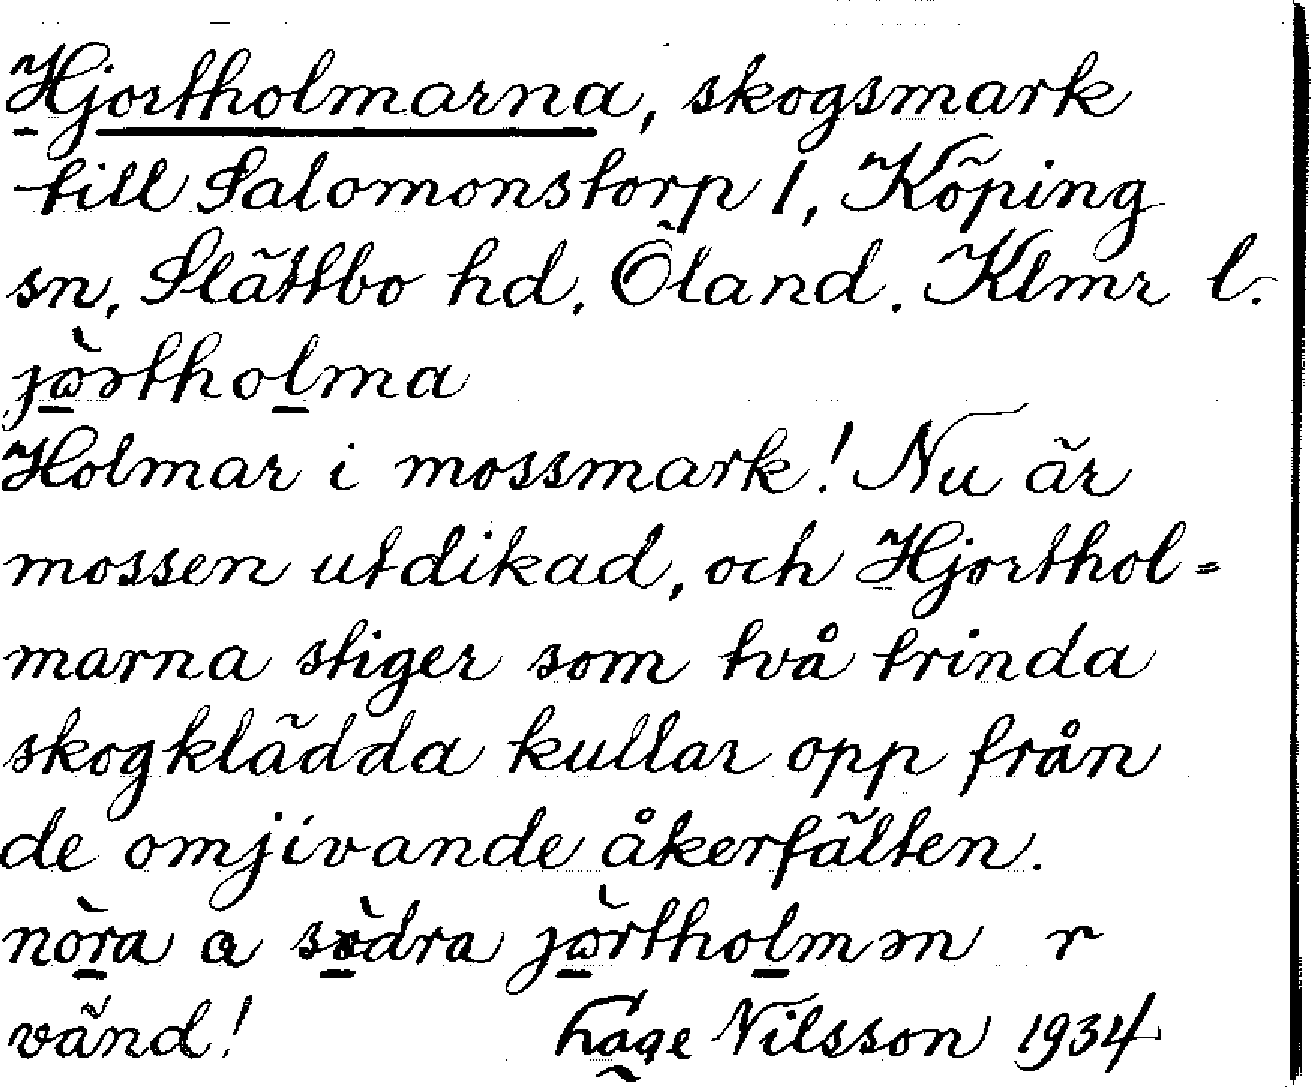 Hjortholmarna, skogsmark
till Salomonstorp 1, Köping
sn, Slättbo hd. Öland. Klmr l.
jòrtholma
Holmar i mossmark! Nu är
mossen utdikad, och Hjorthol=
marna stiger som två trinda
skogklädda kullar opp från
de omjivande åkerfälten.
nòra a södra jòrtholmm r
vänd! Håge Nilsson 1934